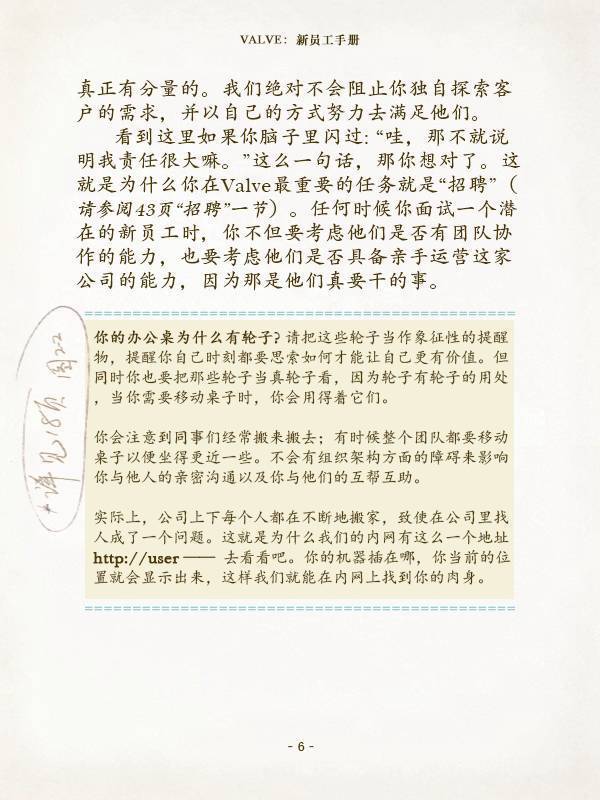 VALVE：新员工手册
真正有分量的。我们绝对不会阻止你独自探索客
户的需求，并以自己的方式努力去满足他们。
看到这里如果你脑子里闪过：“哇，那不就说
明我责任很大嘛。”这么一句话，那你想对了。这
就是为什么你在Valve最重要的任务就是“招聘”（
请参阅43页“招聘”一节）。任何时候你面试一个潜
在的新员工时，你不但要考虑他们是否有团队协
作的能力，也要考虑他们是否具备亲手运营这家
公司的能力，因为那是他们真要干的事。
*详见18页 图2-2
你的办公桌为什么有轮子？请把这些轮子当作象征性的提醒
物，提醒你自己时刻都要思索如何才能让自己更有价值。但
同时你也要把那些轮子当真轮子看，因为轮子有轮子的用处
，当你需要移动桌子时，你会用得着它们。
你会注意到同事们经常搬来搬去；有时候整个团队都要移动
桌子以便坐得更近一些。不会有组织架构方面的障碍来影响
你与他人的亲密沟通以及你与他们的互帮互助。
实际上，公司上下每个人都在不断地搬家，致使在公司里找
人成了一个问题。这就是为什么我们的内网有这么一个地址
http://user —— 去看看吧。你的机器插在哪，你当前的位
置就会显示出来，这样我们就能在内网上找到你的肉身。
- 6 -